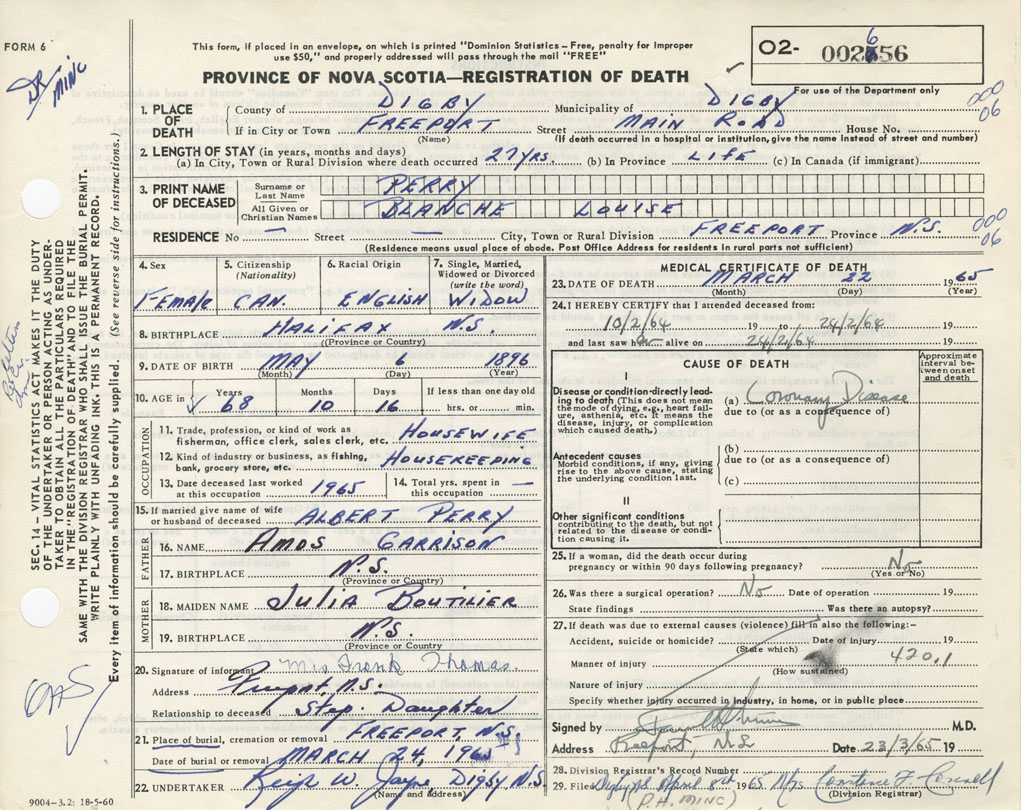 FORM 6
DR
MINC
This form, if placed in an envelope, on which is printed "Dominion Statistics – Free, penalty for improper
use $50," and properly addressed will pass through the mail "FREE"
PROVINCE OF NOVA SCOTIA—REGISTRATION OF DEATH
O2-
For use of the Department only
000
06
1. PLACE OF DEATH County of DIGBY Municipality of DIGBY
If in City or Town FREEPORT Street MAIN ROAD House No.
(Name) (If death occurred in a hospital or institution, give the name instead of street and number)
2. LENGTH OF STAY (in years, months and days)
(a) In City, Town or Rural Division where death occurred 27 YRS. (b) In Province LIFE (c) In Canada (if immigrant)
3. PRINT NAME OF DECEASED Surname or Last Name PERRY
All Given or Christian Names BLANCHE LOUISE
RESIDENCE No — Street — City, Town or Rural Division FREEPORT Province N.S.
000
06
(Residence means usual place of abode. Post Office Address for residents in rural parts not sufficient)
4. Sex 5. Citizenship (Nationality) 6. Racial Origin 7. Single, Married, Widowed or Divorced (write the word)
FEMALE CAN. ENGLISH WIDOW
8. BIRTHPLACE HALIFAX N.S.
(Province or Country)
9. DATE OF BIRTH MAY 6 1896
(Month) (Day) (Year)
10. AGE in Years Months Days If less than one day old
68 10 16 hrs. or min.
OCCUPATION
11. Trade, profession, or kind of work as
fisherman, office clerk, sales clerk, etc. HOUSEWIFE
12. Kind of industry or business, as fishing,
bank, grocery store, etc. HOUSEKEEPING
13. Date deceased last worked
at this occupation 1965
14. Total yrs. spent in
this occupation —
15. If married give name of wife
or husband of deceased ALBERT PERRY
FATHER
16. NAME AMOS GARRISON
17. BIRTHPLACE N.S.
(Province or Country)
MOTHER
18. MAIDEN NAME JULIA BOUTILIER
19. BIRTHPLACE N.S.
(Province or Country)
20. Signature of informant Mrs Frank Thomas.
Address Freeport, N.S.
Relationship to deceased Step. Daughter
21. Place of burial, cremation or removal FREEPORT N.S.
Date of burial or removal MARCH 24, 1965
22. UNDERTAKER W. Jayne, DIGBY N.S.
(Name and address)
9004–3.2: 18-5-60
MEDICAL CERTIFICATE OF DEATH
23. DATE OF DEATH MARCH 22 1965
(Month) (Day) (Year)
24. I HEREBY CERTIFY that I attended deceased from:
10/2/64 19 to 24/2/64 19
and last saw her alive on 24/2/64 19
CAUSE OF DEATH
Approximate
interval be-
tween onset
and death
I
Disease or condition directly lead-
ing to death (This does not mean
the mode of dying, e.g., heart fail-
ure, asthenia, etc. It means the
disease, injury, or complication
which caused death.)
(a) Coronary Disease
due to (or as a consequence of)
Antecedent causes
Morbid conditions, if any, giving
rise to the above cause, stating
the underlying condition last.
(b)
due to (or as a consequence of)
(c)
II
Other significant conditions
contributing to the death, but not
related to the disease or condi-
tion causing it.
25. If a woman, did the death occur during
pregnancy or within 90 days following pregnancy? No
(Yes or No)
26. Was there a surgical operation? No Date of operation 19
State findings Was there an autopsy?
27. If death was due to external causes (violence) fill in also the following:–
Accident, suicide or homicide? Date of injury 19
(State which)
420.1
Manner of injury
(How sustained)
Nature of injury
Specify whether injury occurred in industry, in home, or in public place
Signed by M.D.
Address Freeport, N.S. Date 23/3/65 19
28. Division Registrar's Record Number
29. Filed 1965 Mrs Constance F. Connell
(P.H. MINC) (Division Registrar)
SEC. 14 – VITAL STATISTICS ACT MAKES IT THE DUTY
OF THE UNDERTAKER OR PERSON ACTING AS UNDER-
TAKER TO OBTAIN ALL THE PARTICULARS REQUIRED
IN THE "REGISTRATION OF DEATH" AND TO FILE THE
SAME WITH THE DIVISION REGISTRAR WHO SHALL ISSUE THE BURIAL PERMIT.
WRITE PLAINLY WITH UNFADING INK. THIS IS A PERMANENT RECORD.
Every item of information should be carefully supplied. (See reverse side for instructions.)